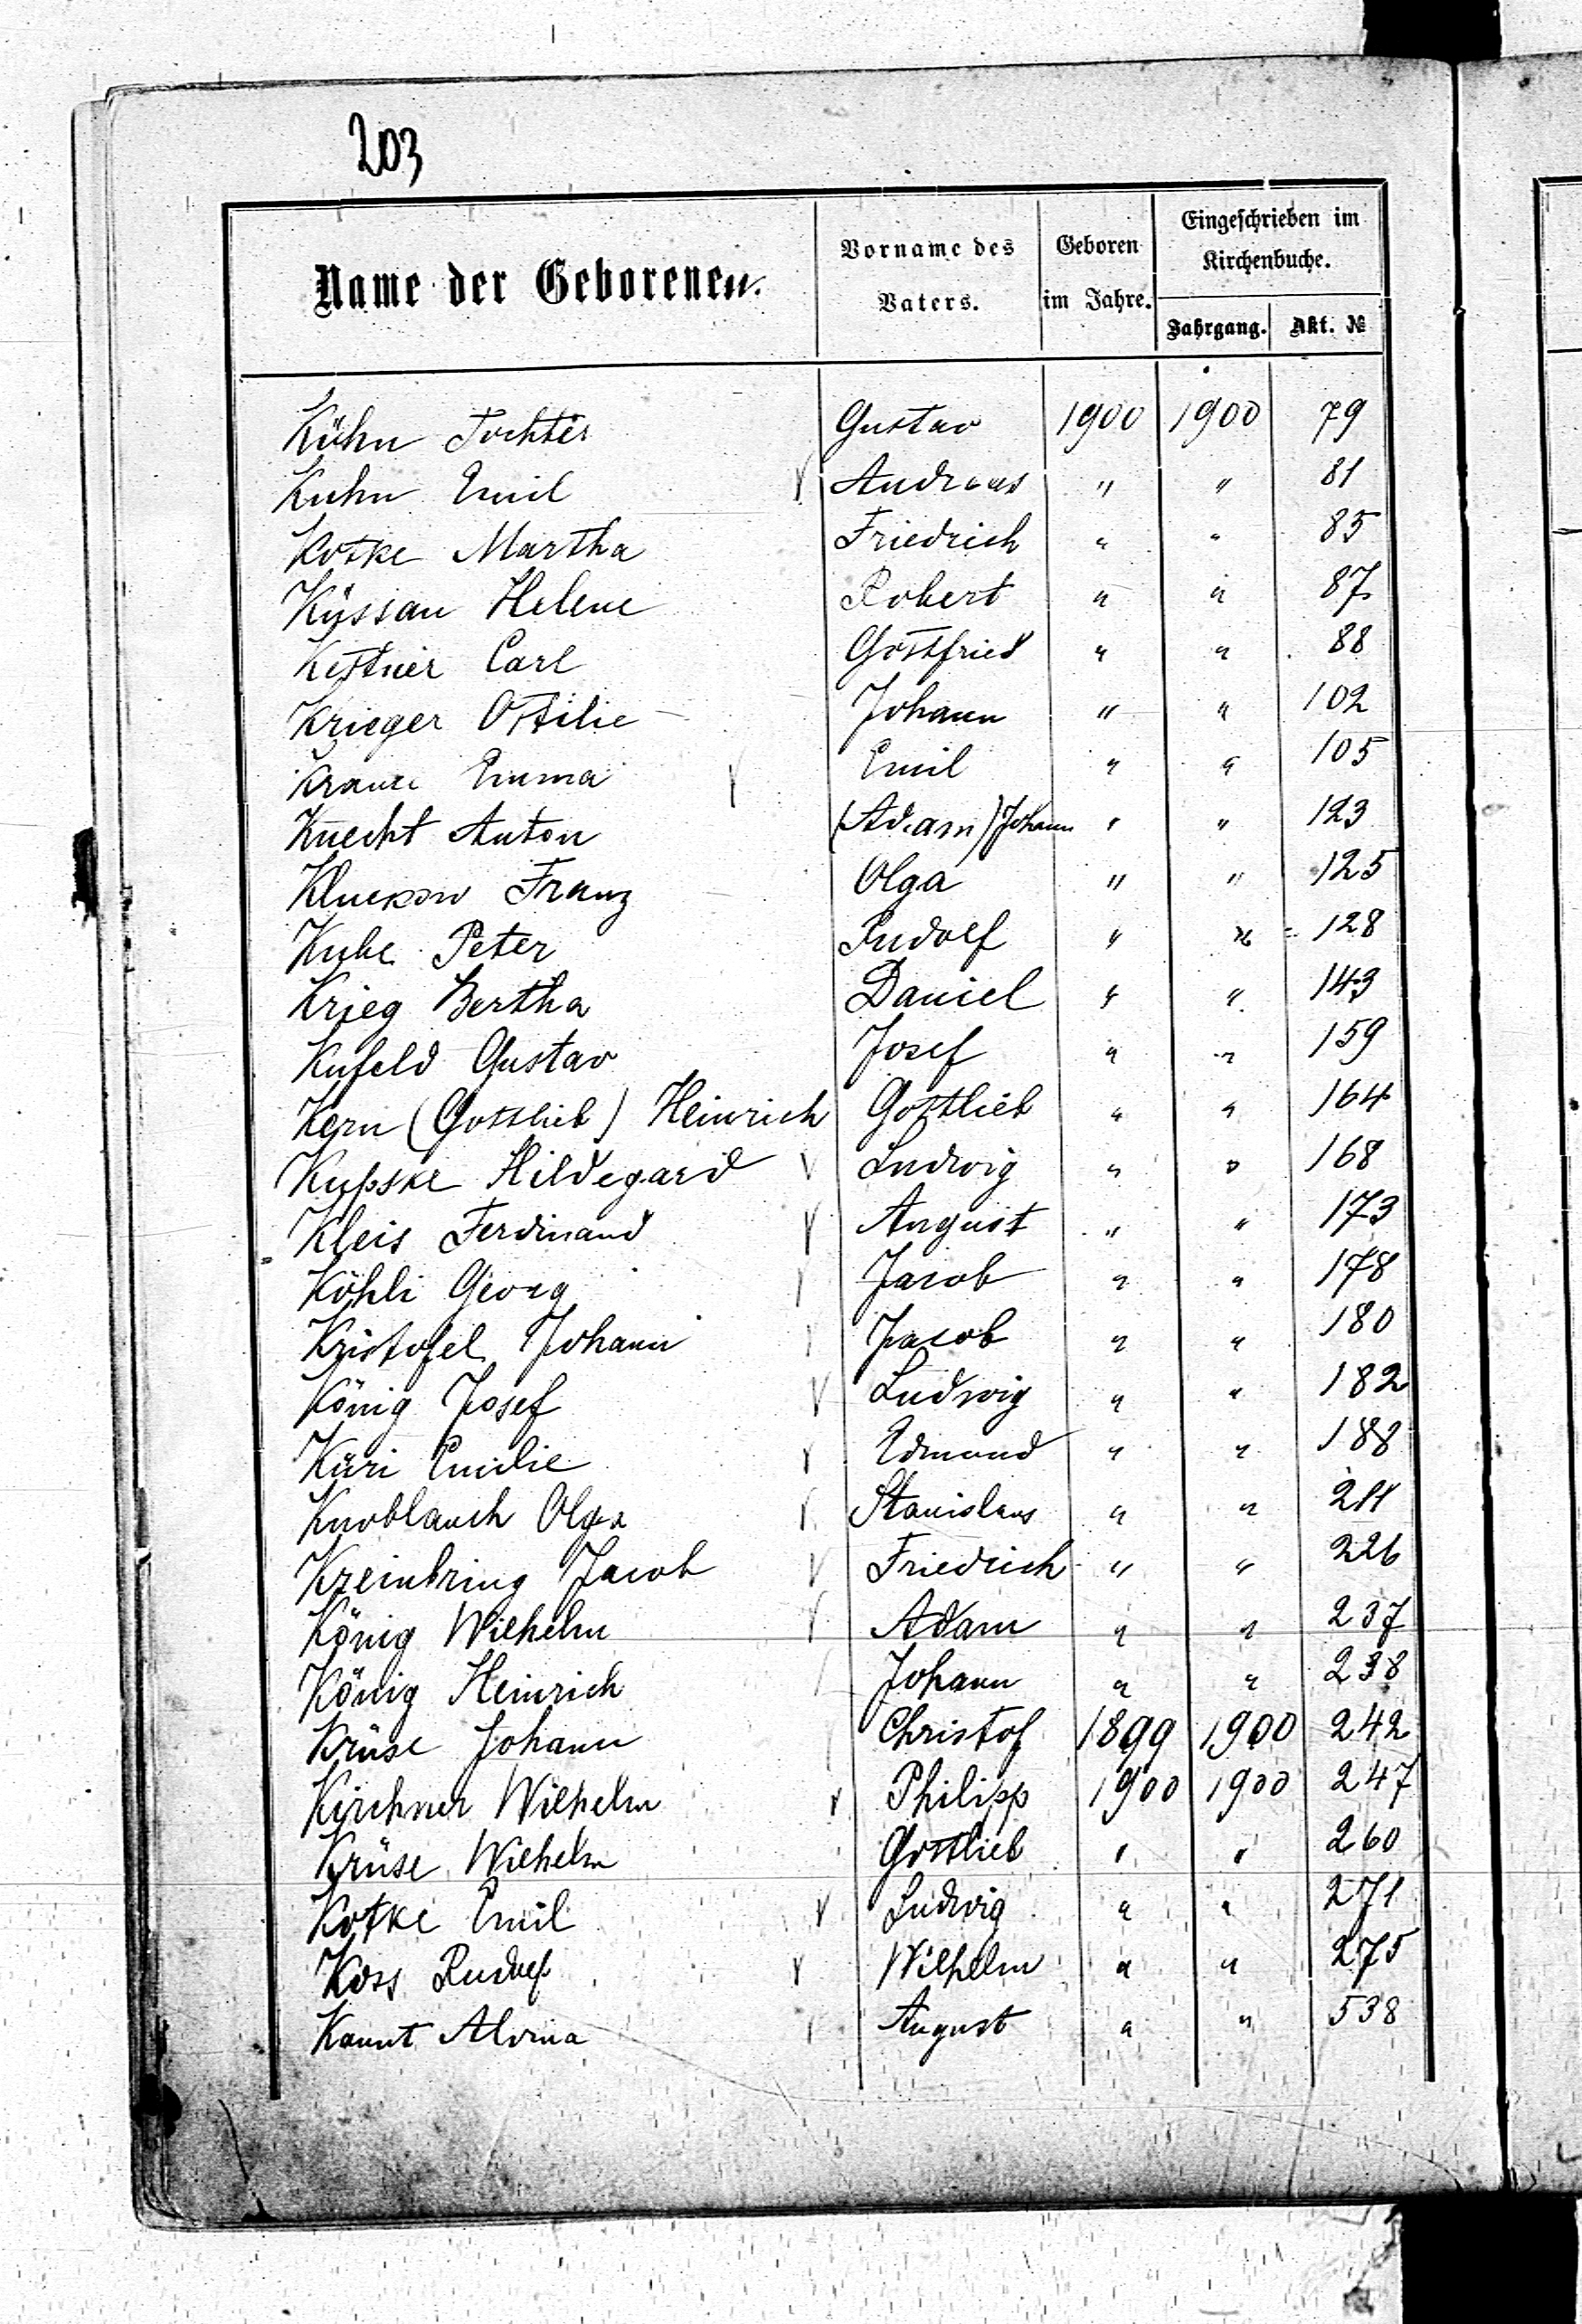 203
Name der Geborenen. Vorname des Vaters. Geboren im Jahre. Eingeschrieben im Kirchenbuche.
Jahrgang. Akt. №
Kühn Tochter Gustav 1900 1900 79
Kuhn Emil Andreas " " 81
Kotke Martha Friedrich " " 85
Küssau Helene Robert " " 87
Kettner Carl Gottfried " " 88
Krieger Ottilie Johann " " 102
Emma Emil " " 105
Knecht Anton (Adam) Johann " " 123
Kluckow Franz Olga " " 125
Kube Peter Rudolf " " 128
Krieg Bertha Daniel " " 143
Kufeld Gustav Josef " " 159
Kern (Gottlieb) Heinrich Gottlieb " " 164
Hildegard Ludwig " " 168
Kleis Ferdinand August " " 173
Köhli Georg Jacob " " 178
Kristofel Johann Jacob " " 180
König Josef Ludwig " " 182
Küri Emilie Edmund " " 188
Knoblauch Olga Stanislaus " " 211
Kreinbring Jacob Friedrich " " 226
König Wilhelm Adam " " 237
König Heinrich Johann " " 238
Krüse Johann Christof 1899 1900 242
Kirchner Wilhelm Philipp 1900 1900 247
Krüse Wilhelm Gottlieb " " 260
Kotke Emil Ludwig " " 271
Koss Rudolf Wilhelm " " 275
Kannt Alvina August " " 538